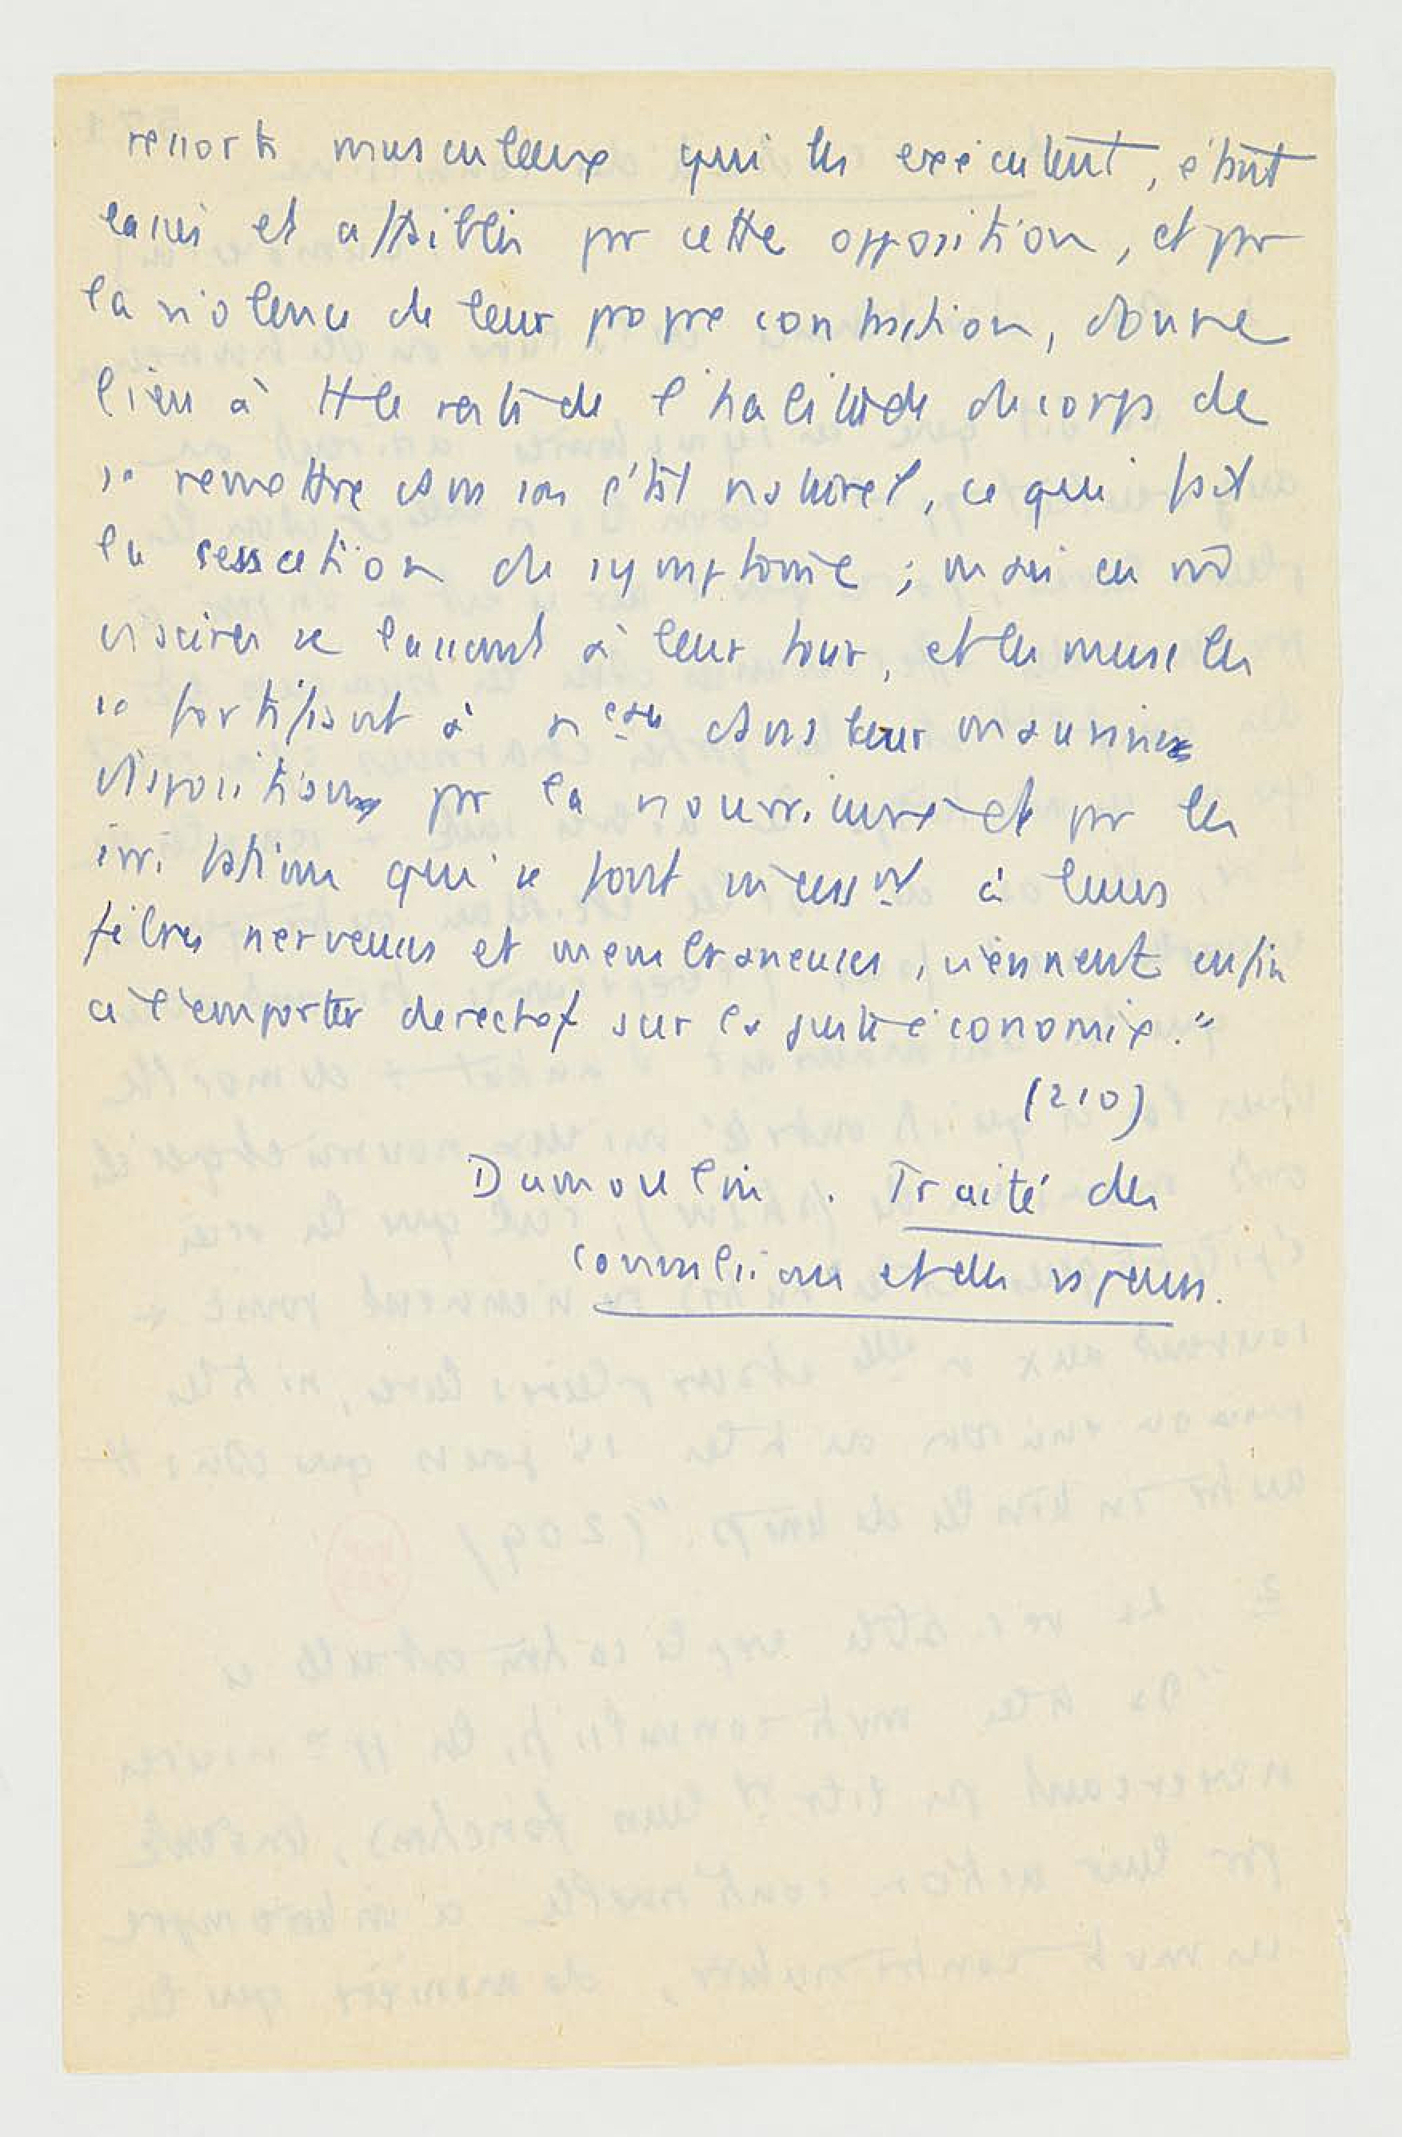 ressorts musculeux qui les exécutent, étant
lassés et affaiblis par cette opposition, et par
la violence de leur propre contraction, donne
lieu à tt le reste de l'habitude du corps de
se remettre dans son état naturel, ce qui fait
la cessation du symptome ; mais ces m̄
viscères se lassant à leur tour, et les muscles
se fortifiant à nveau dans leur mauvaise
disposition par la nourriture et par les
irritations qui se font incessmt à leurs
fibres nerveuses et membraneuses, viennent enfin
à l'emporter derechef sur la juste économie."
(210)
Dumoulin. Traité des
convulsions et des vapeurs.